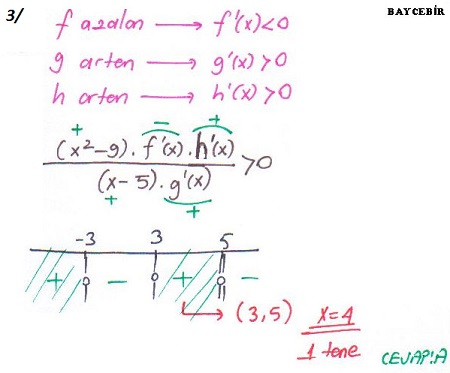 3/ BAYCEBİR
f azalan → f'(x)<0
g arten → g'(x)>0
h arten → h'(x)>0
+ − +
(x²-9).f'(x).h'(x)
>0
(x-5).g'(x)
+ +
-3 3 5
+ − + −
(3,5) x=4
1 tane CEVAP:A